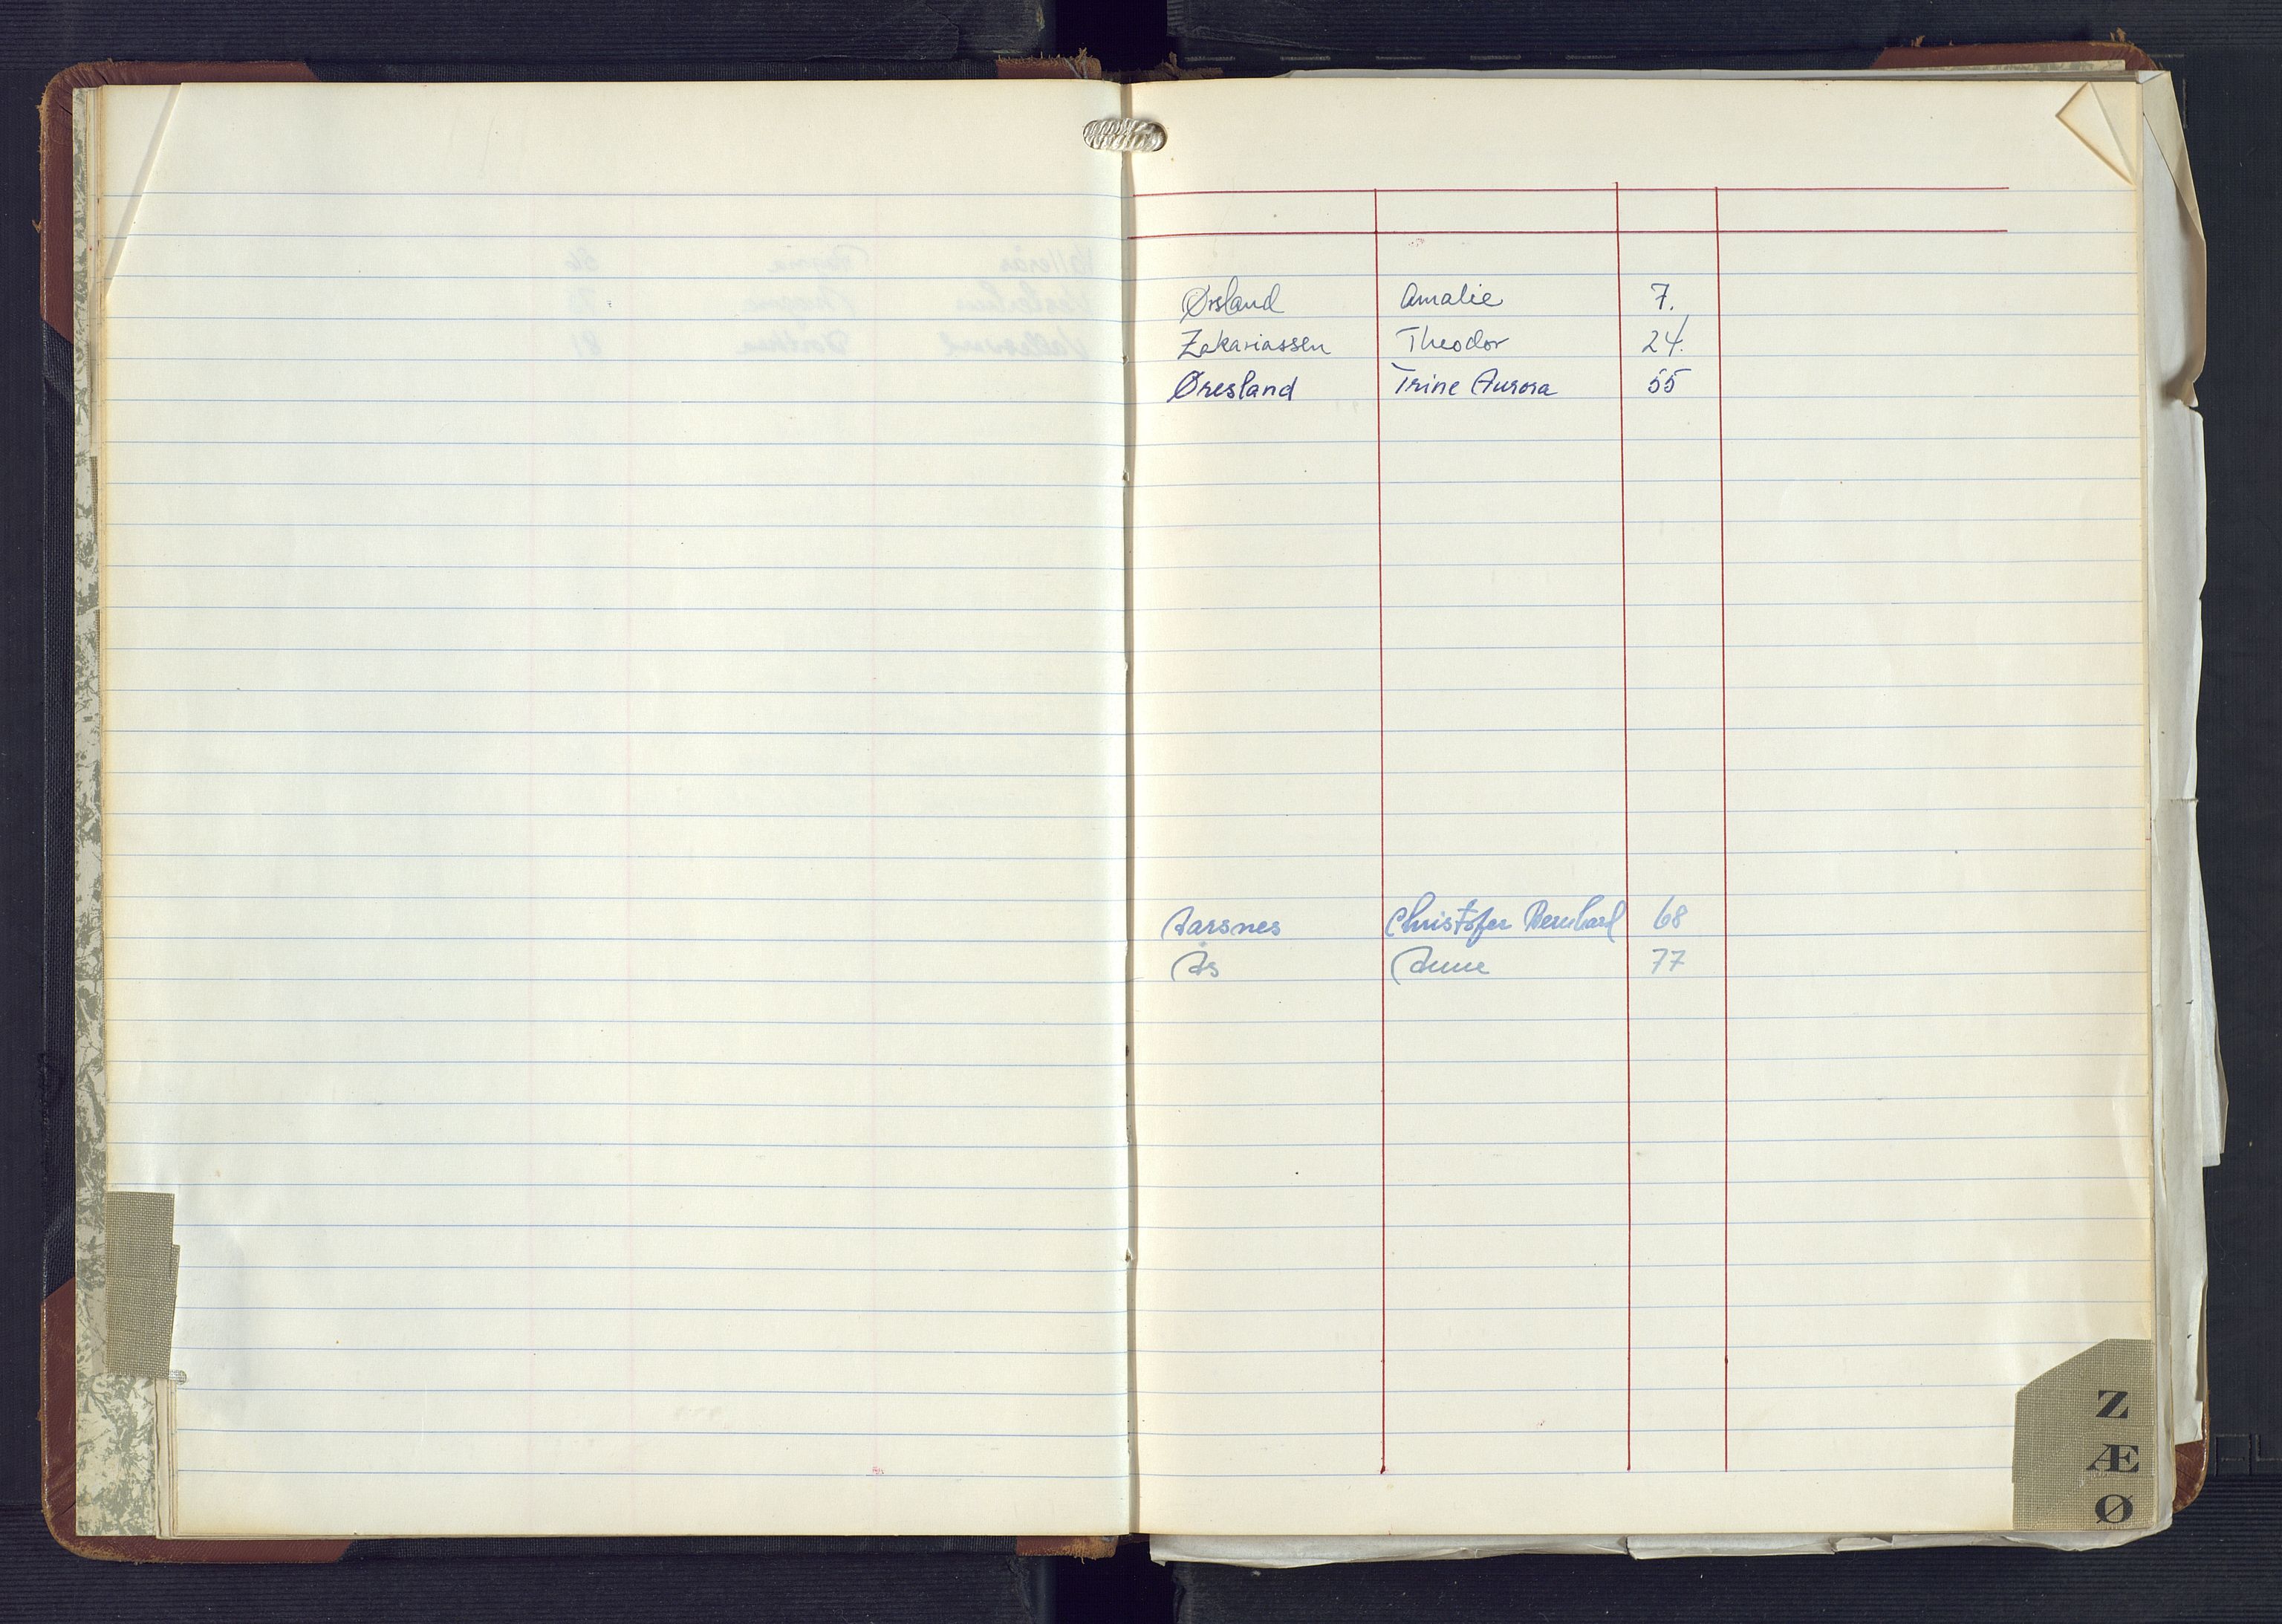 Ørsland Amalie 7.
Zakariassen Theodor 24.
Øresland Trine Aurora 55
Aarsnes Christofer Bernhard 68
Ås Anne 77
Z
Æ
Ø